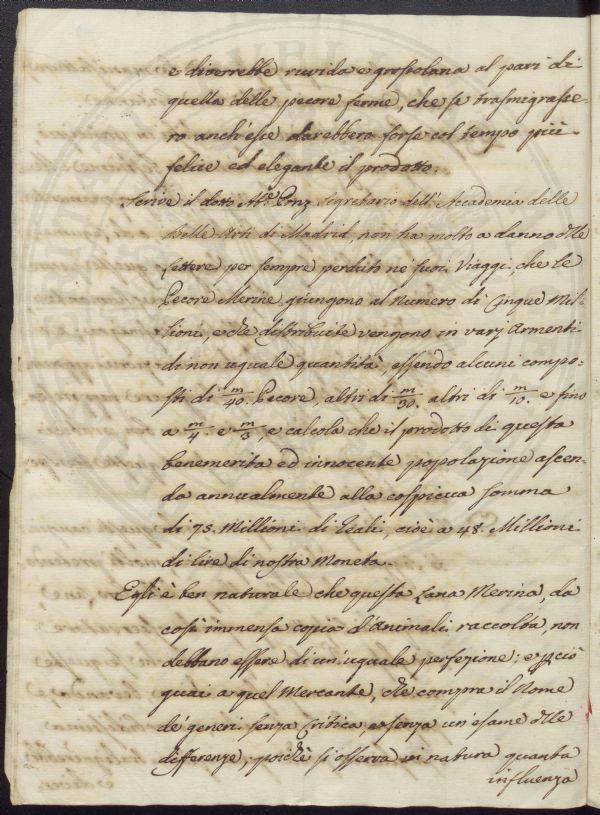 e diverrebbe ruvida e grossolana al pari di
quella delle pecore ferme, che se trasmigrasse-
ro anch'esse darebbero forse col tempo più
felice ed elegante il prodotto.
Scrive il dotto Ab.e Ponz Segretario dell'Accademia delle
Belle Arti di Madrid, non ha molto a danno delle
Lettere per sempre perduto ne' suoi Viaggi, che le
Pecore Merine giungono al Numero di Cinque Mil-
lioni, e che distribuite vengono in varj Armenti
di non uguale quantità, essendo alcuni compo-
sti di m/40. Pecore, altri di m/30. altri di m/10. e fino
a m/4. e m/3, e calcola che il prodotto di questa
benemerita ed innocente popolazione ascen-
da annualmente alla cospicua somma
di 75. Millioni di Reali, cioè a 48. Millioni
di lire di nostra Moneta.
Egli è ben naturale che questa Lana Merina, da
così immensa copia d'Animali raccolta, non
debbano essere di un'uguale perfezione; e perciò
guai a quel Mercante, che compra il Nome
de' generi senza Critica, e senza un'esame delle
differenze; poichè si osserva in natura quanta
influenza